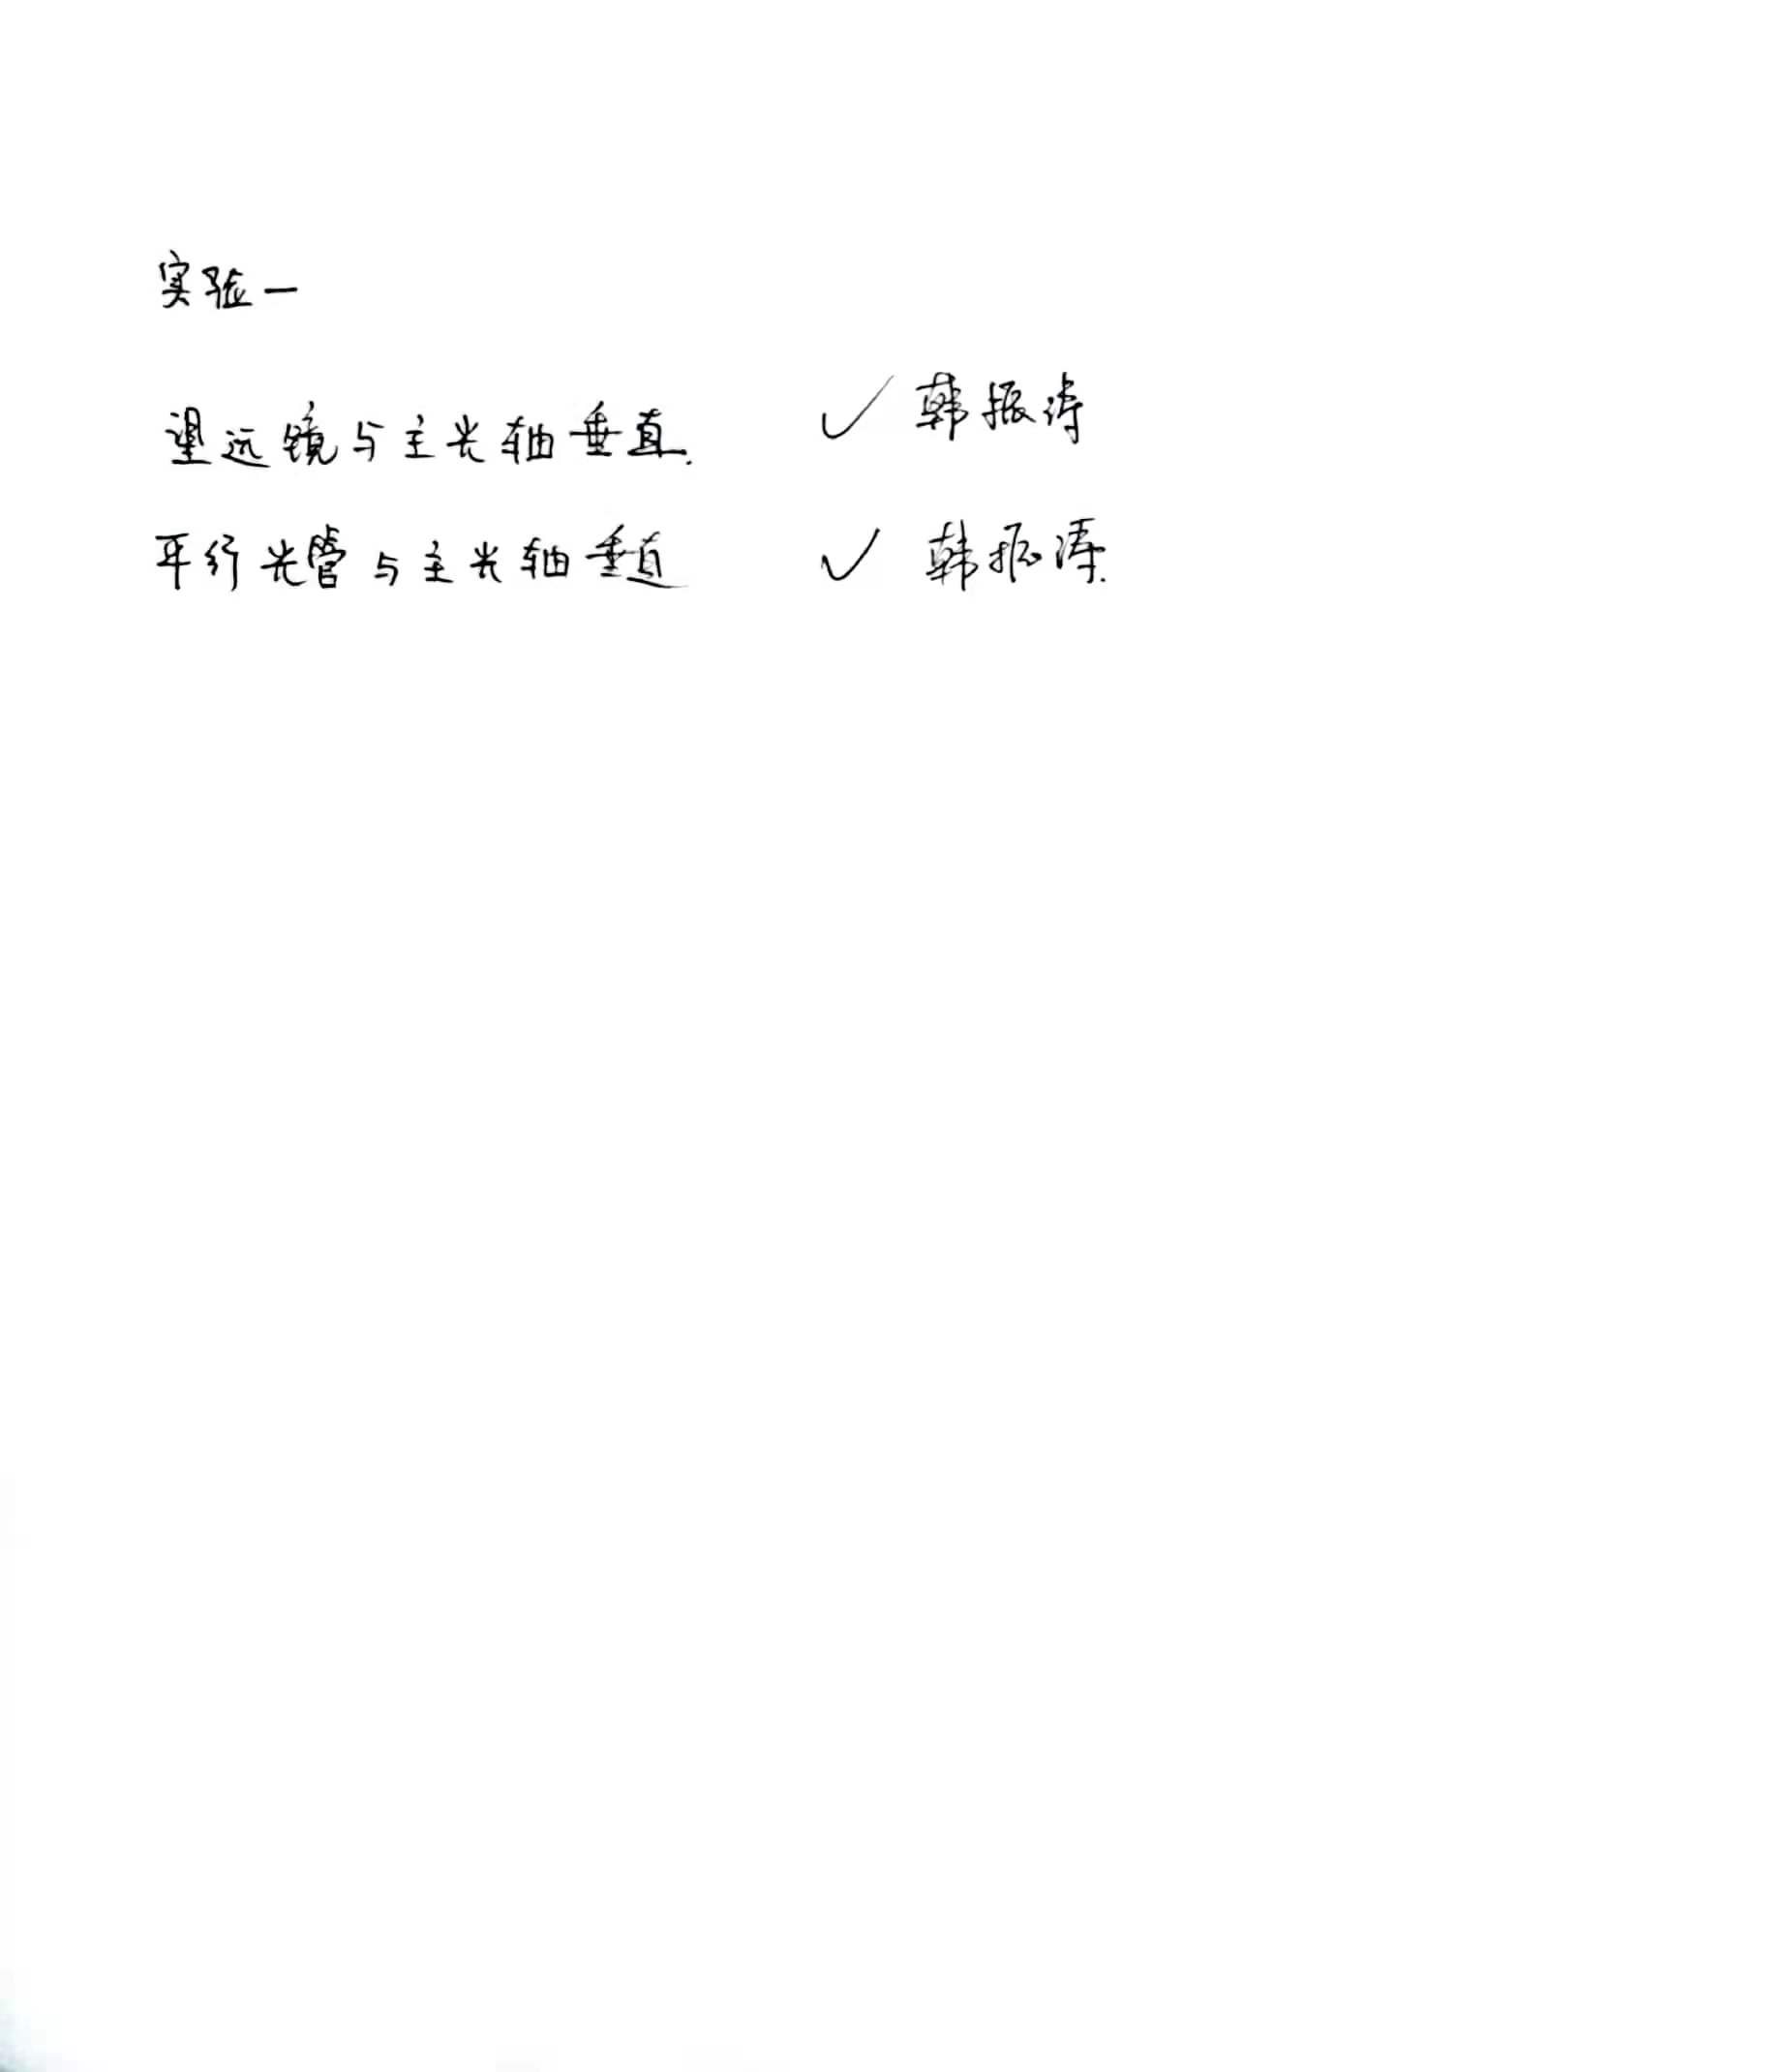 实验一
望远镜与主光轴垂直. ✓ 韩振涛
平行光管与主光轴垂直 ✓ 韩振涛.